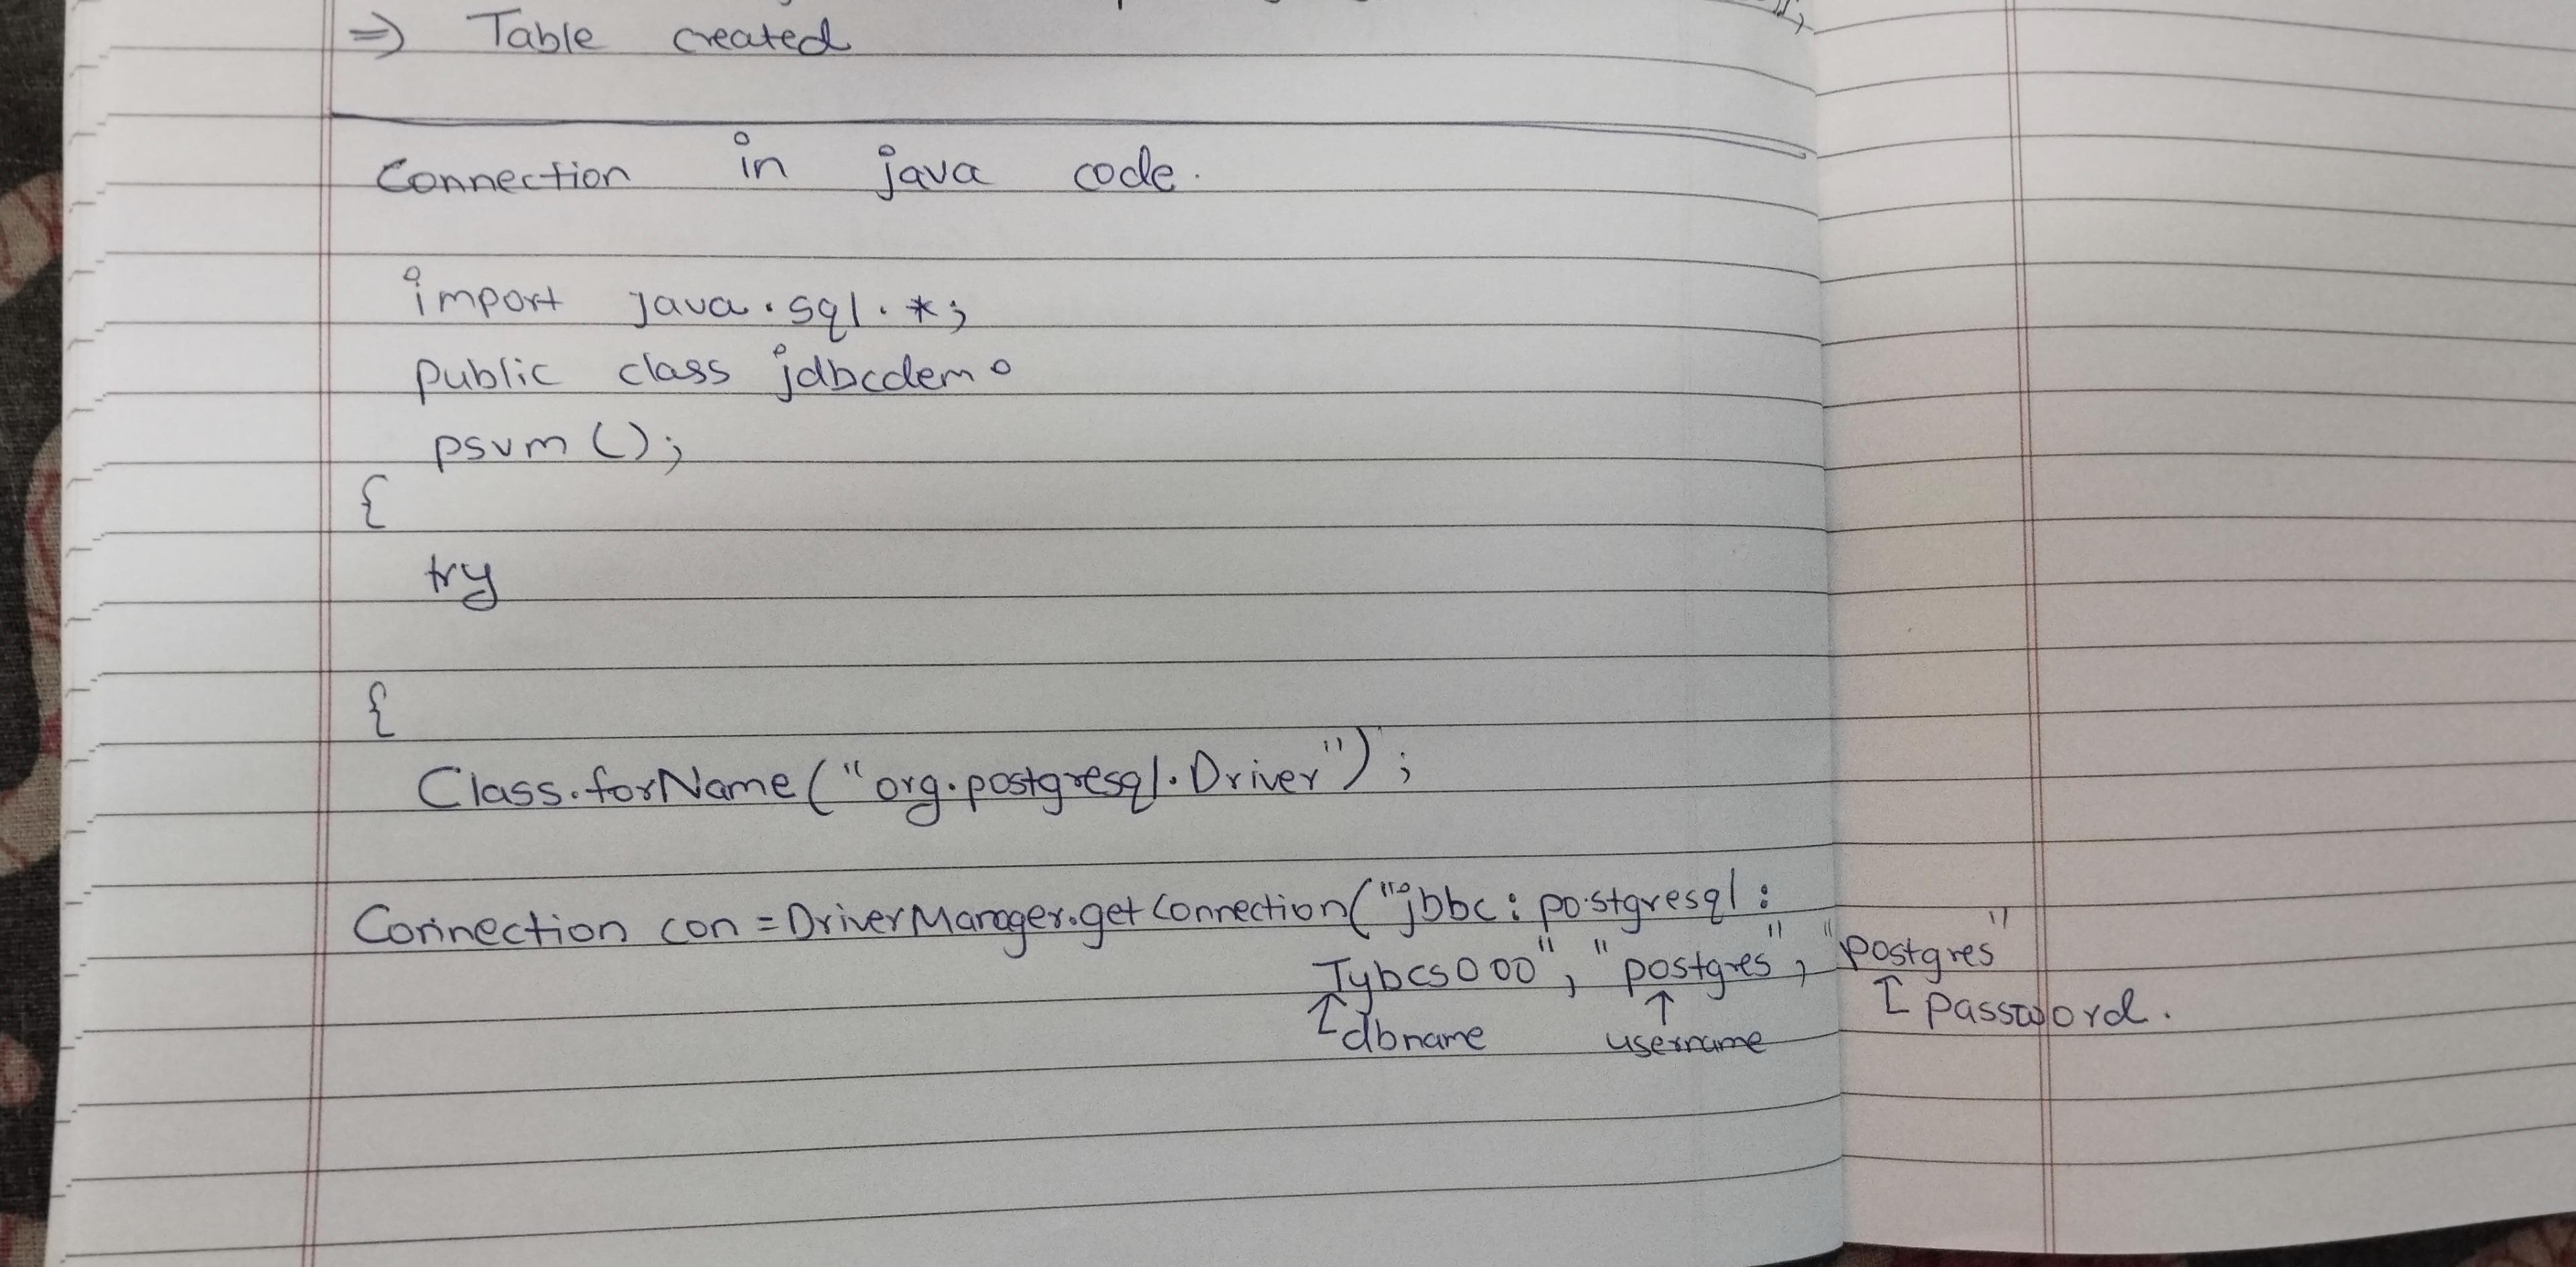 ⇒ Table created
Connection in java code.
import java.sql.*;
public class jdbcdemo
psvm();
{
try
{
Class.forName("org.postgresql.Driver");
Connection con = DriverManager.getConnection("jbbc: postgresql:
Tybcs000", "postgres", "postgres"
↑ dbname ↑ username ↑ password.